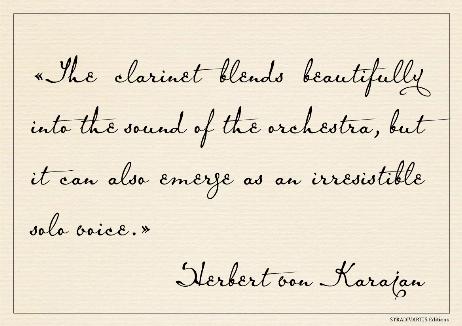 «The clarinet blends beautifully
into the sound of the orchestra, but
it can also emerge as an irresistible
solo voice.»
Herbert von Karajan
STRADIVARIUS Editions